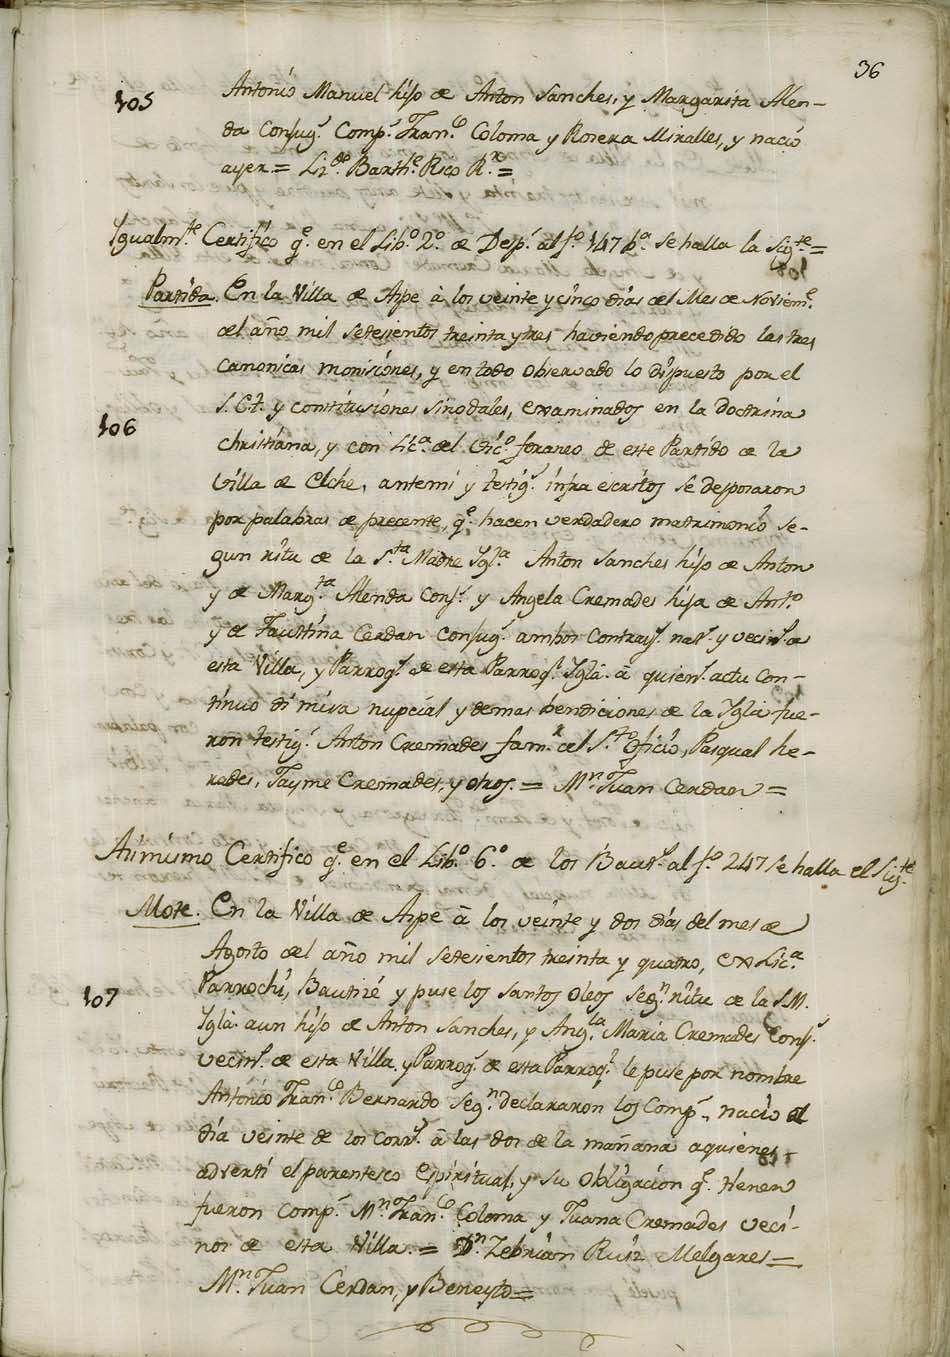 36
105 Antonio Manuel hijo de Anton Sanches, y Margarita Alen-
da Consug.s Comp.s Fran.co Coloma y Rosera Miralles, y nació
ayer = Li.do Barth.e Rico R.r =
Igualm.te Certifico q.e en el Lib.o 2.o de Desp.s al f.o 147 b.a se halla la Sig.te =
Partida. En la Villa de Aspe à los veinte y cinco dias del Mes de Noviem.e
del año mil setesientos treinta y tres haviendo precedido las tres
canonicas monisiones, y en todo observado lo dispuesto por el
S. Ct. y constitusiones sinodales, examinados en la doctrina
106 christiana, y con Lic.a del Vic.o foraneo de este Partido de la
Villa de Elche, antemi y testig.s infraescritos se desposaron
por palabras de precente, q.e hacen verdadero matrimonio se-
gun ritu de la S.ta Madre Igl.a Anton Sanches hijo de Anton
y de Marg.ta Alenda Cons.s y Angela Cremades hija de Ant.o
y de Faustina Cerdan consug.s ambos contray.s nat.s y vecin.s de
esta Villa, y Parroq.s de esta Parroq.l Iglã. ã quien.s actu con-
tinuo di misa nupcial y demas bendiciones de la Iglã fue-
ron testig.s Anton Cremades fam.r del S.to Oficio, Pasqual he-
rades, Jayme Cremades, y otros. = M.n Juan Cerdan =
Asimismo Certifico q.e en el Lib.o 6.o de los Baut.s al f.o 247 se halla el Sig.te
Mote. En la Villa de Aspe ã los veinte y dos dias del mes de
Agosto del año mil setesientos treinta y quatro, ex Lic.a
107 Parrochi, Bautizé y puse los santos oleos seg.n ritu de la S.M.
Iglã aun hijo de Anton Sanches, y Ang.la Maria Cremades Cons.s
vecin.s de esta Villa, y Parroq.s de esta Parroq.l le puse por nombre
Antonio Fran.co Bernardo seg.n declararon los Comp.s, nacio al
dia veinte de los corr.s ã las dos de la mañana aquienes
adverti el parentesco espiritual, y su obligacion q.e tienen
fueron comp.s M.n Fran.co Coloma y Juana Cremades veci-
nos de esta Villa. = D.n Zebrian Ruiz Melgares =
M.n Juan Cerdan, y Beneyto =